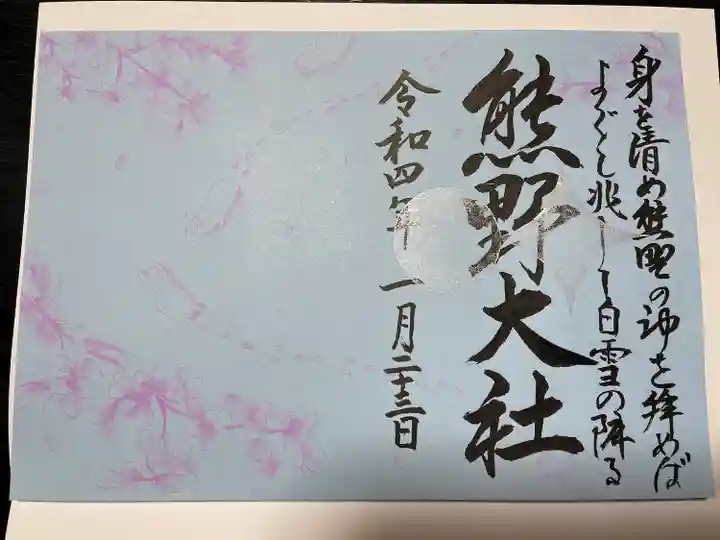 身を清め熊野の神を拝めば
よごと兆して白雪の降る
熊野大社
令和四年 一月二十三日